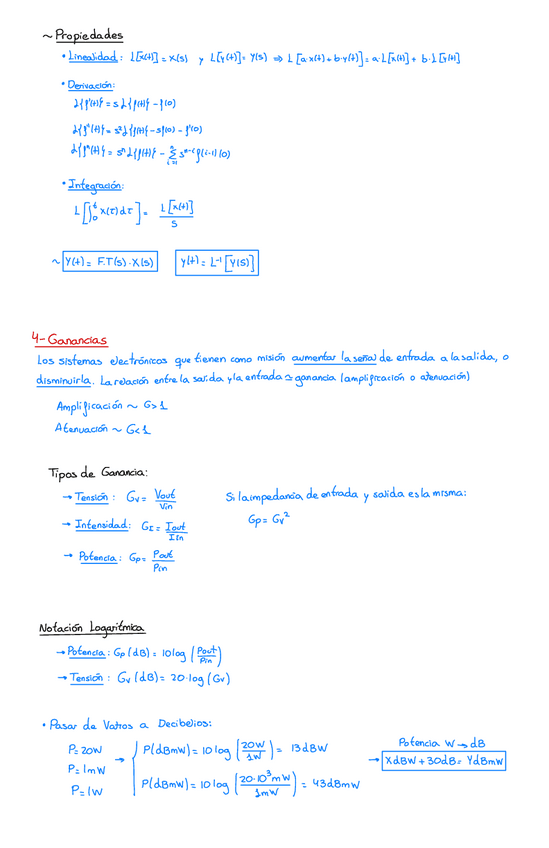 ~ Propiedades
• Linealidad: L[x(t)] = X(s) y L[y(t)] = Y(s) ⇒ L[a·x(t) + b·y(t)] = a·L[x(t)] + b·L[y(t)]
• Derivación:
L{f'(t)} = s L{f(t)} - f(0)
L{f''(t)} = s² L{f(t)} - sf(0) - f'(0)
L{fⁿ(t)} = sⁿ L{f(t)} - Σ_{i=1}^{n} s^{n-i} f(i-1)(0)
• Integración:
L[∫₀ᵗ x(τ) dτ] = L[x(t)] / S
~ Y(t) = F.T(s)·X(s) y(t) = L⁻¹[Y(s)]
4- Ganancias
Los sistemas electrónicos que tienen como misión aumentar la señal de entrada a la salida, o
disminuirla. La relación entre la salida y la entrada ≃ ganancia (amplificación o atenuación)
Amplificación ~ G>1
Atenuación ~ G<1
Tipos de Ganancia:
→ Tensión: Gv = Vout / Vin Si la impedancia de entrada y salida es la misma:
→ Intensidad: GI = Iout / Iin Gp = Gv²
→ Potencia: Gp = Pout / Pin
Notación Logarítmica
→ Potencia: Gp (dB) = 10 log (Pout / Pin)
→ Tensión: Gv (dB) = 20·log (Gv)
• Pasar de Vatios a Decibelios:
P = 20W → P(dBmW) = 10 log (20W / 1W) = 13dBW Potencia W → dB
P = 1mW → XdBW + 30dB = YdBmW
P = 1W P(dBmW) = 10 log (20·10³mW / 1mW) = 43dBmW